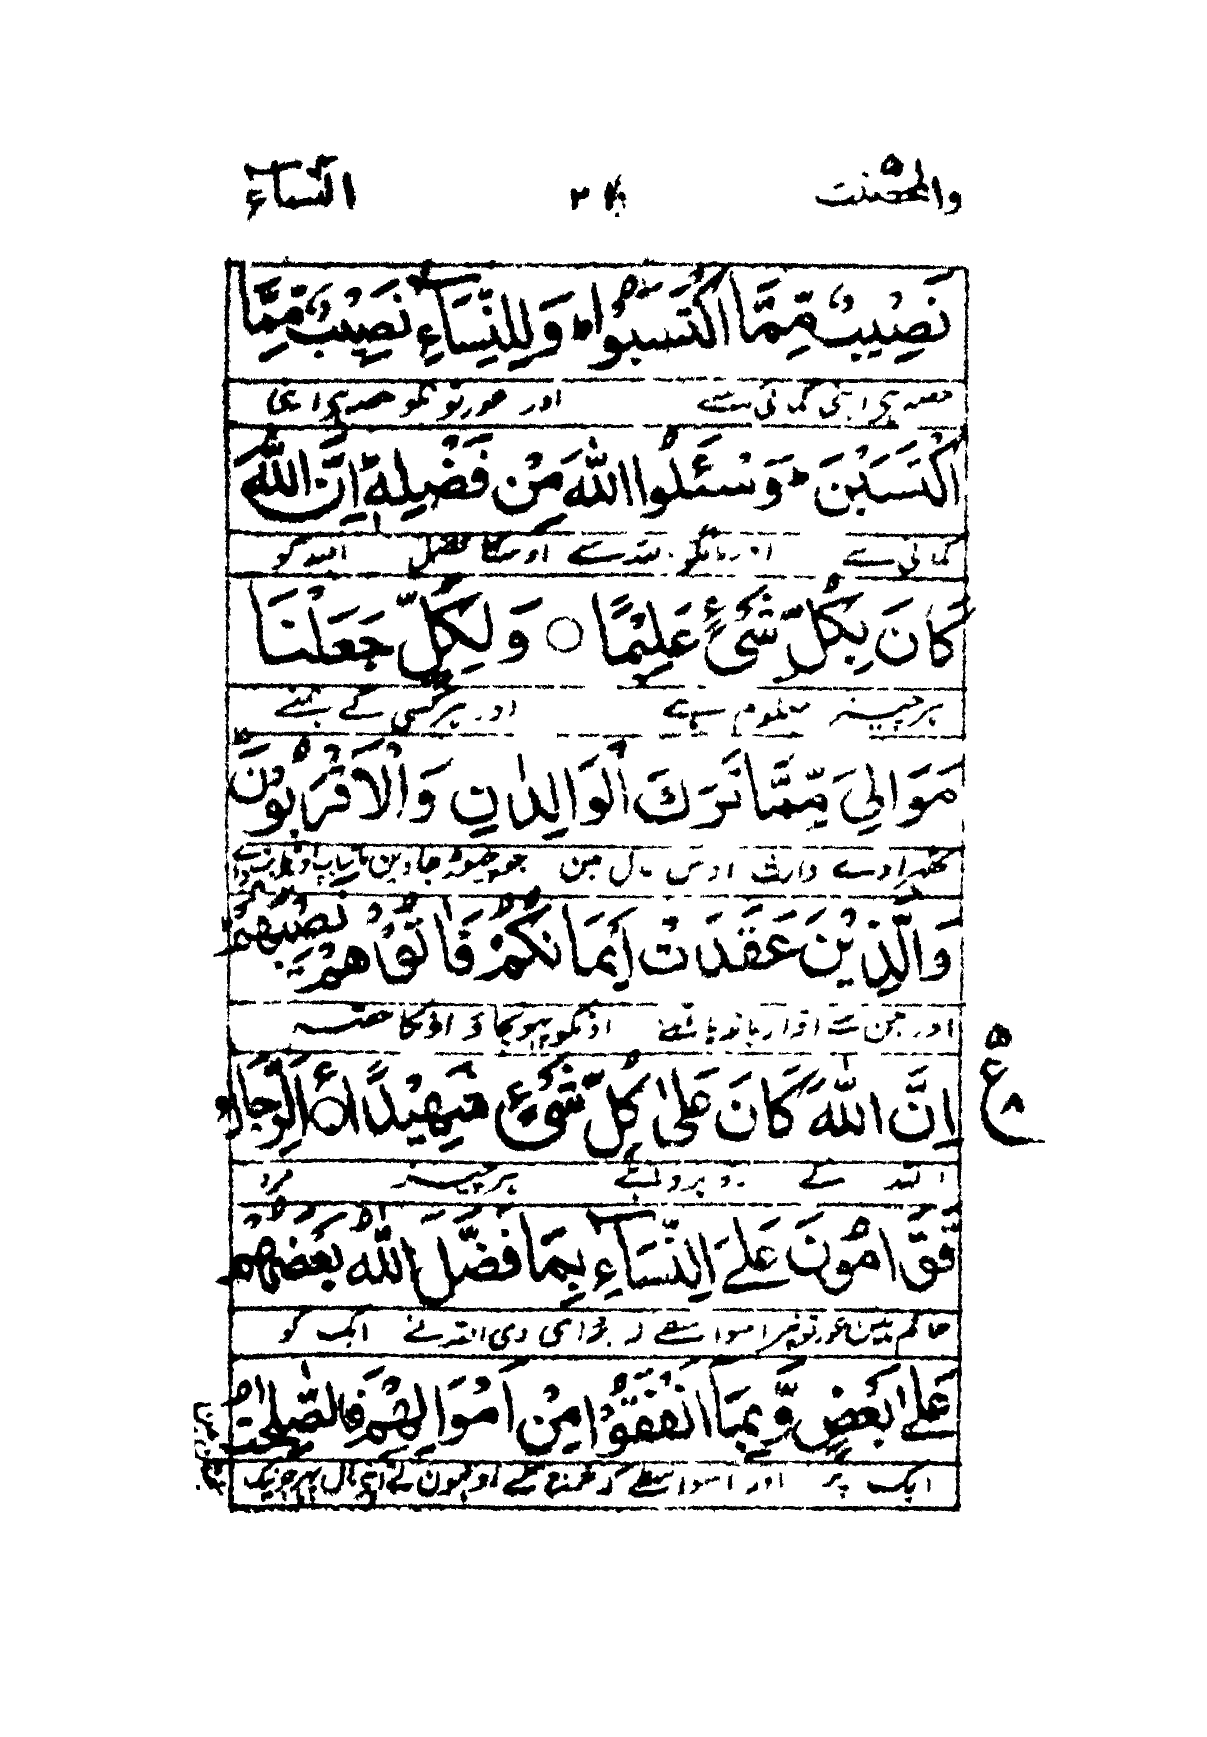 والمحصنت ۵ النساء
نَصِيْبٌ مِّمَّا اكْتَسَبُوْا ؕ وَلِلنِّسَآءِ نَصِيْبٌ مِّمَّا
حصہ ہی اپنی کمائی سے اور عورتونکو حصہ ہی اپنی
اكْتَسَبْنَ ؕ وَسْـَٔلُوا اللّٰهَ مِنْ فَضْلِهٖ ؕ اِنَّ اللّٰهَ
کمائی سے اور مانگو اللہ سے اوسکا فضل اللہ کو
كَانَ بِكُلِّ شَیْءٍ عَلِيْمًا ○ وَلِكُلٍّ جَعَلْنَا
ہر چیز معلوم ہے اور ہر کسی کے ہمنے
مَوَالِیَ مِمَّا تَرَكَ الْوَالِدٰنِ وَالْاَقْرَبُوْنَ
ٹھہرا دے وارث اوس مال مین جو چھوڑ جاوین مانباپ اور
وَالَّذِيْنَ عَقَدَتْ اَيْمَانُكُمْ فَاٰتُوْهُمْ نَصِيْبَهُمْ
اور جن سے اقرار باندھا تمنے اونکو پہونچاؤ اونکا حصہ
اِنَّ اللّٰهَ كَانَ عَلٰى كُلِّ شَیْءٍ شَهِيْدًا ○ اَلرِّجَالُ
۵ ع ۸
اللہ کے روبرو ہے ہر چیز مرد
قَوّٰمُوْنَ عَلَى النِّسَآءِ بِمَا فَضَّلَ اللّٰهُ بَعْضَهُمْ
حاکم ہین عورتونپر اسواسطے کہ بڑائی دی اللہ نے ایک کو
عَلٰى بَعْضٍ وَّبِمَآ اَنْفَقُوْا مِنْ اَمْوَالِهِمْ فَالصّٰلِحٰتُ
ایک پر اور اسواسطے کہ خرچ کئے اونہون نے اپنی مال پہر جو نیک